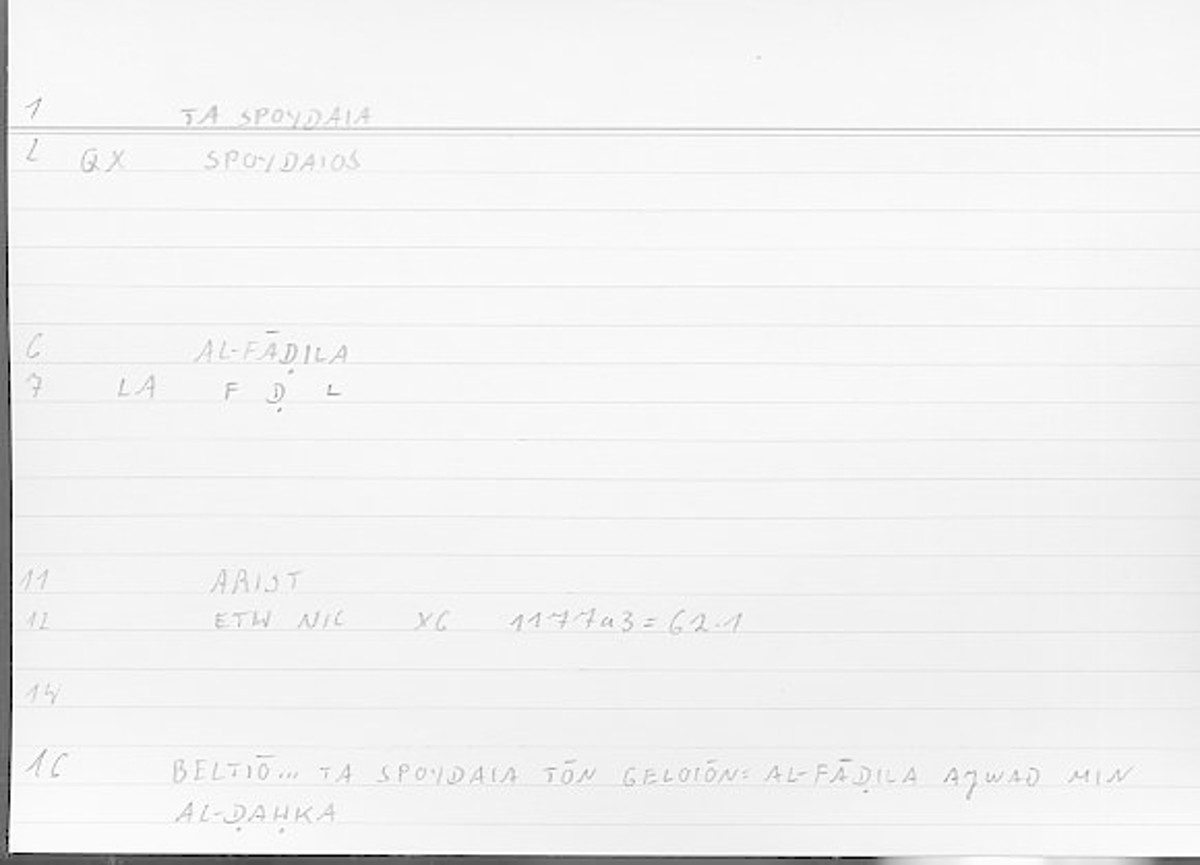 1 TA SPOYDAIA
2 QX SPOYDAIOS
6 AL-FĀḌILA
7 LA F Ḍ L
11 ARIST
12 ETH NIC X6 1177a3=62.1
14
16 BELTIŌ... TA SPOYDAIA TŌN GELOIŌN: AL-FĀḌILA AǧWAD MIN
AL-ḌAḤKA